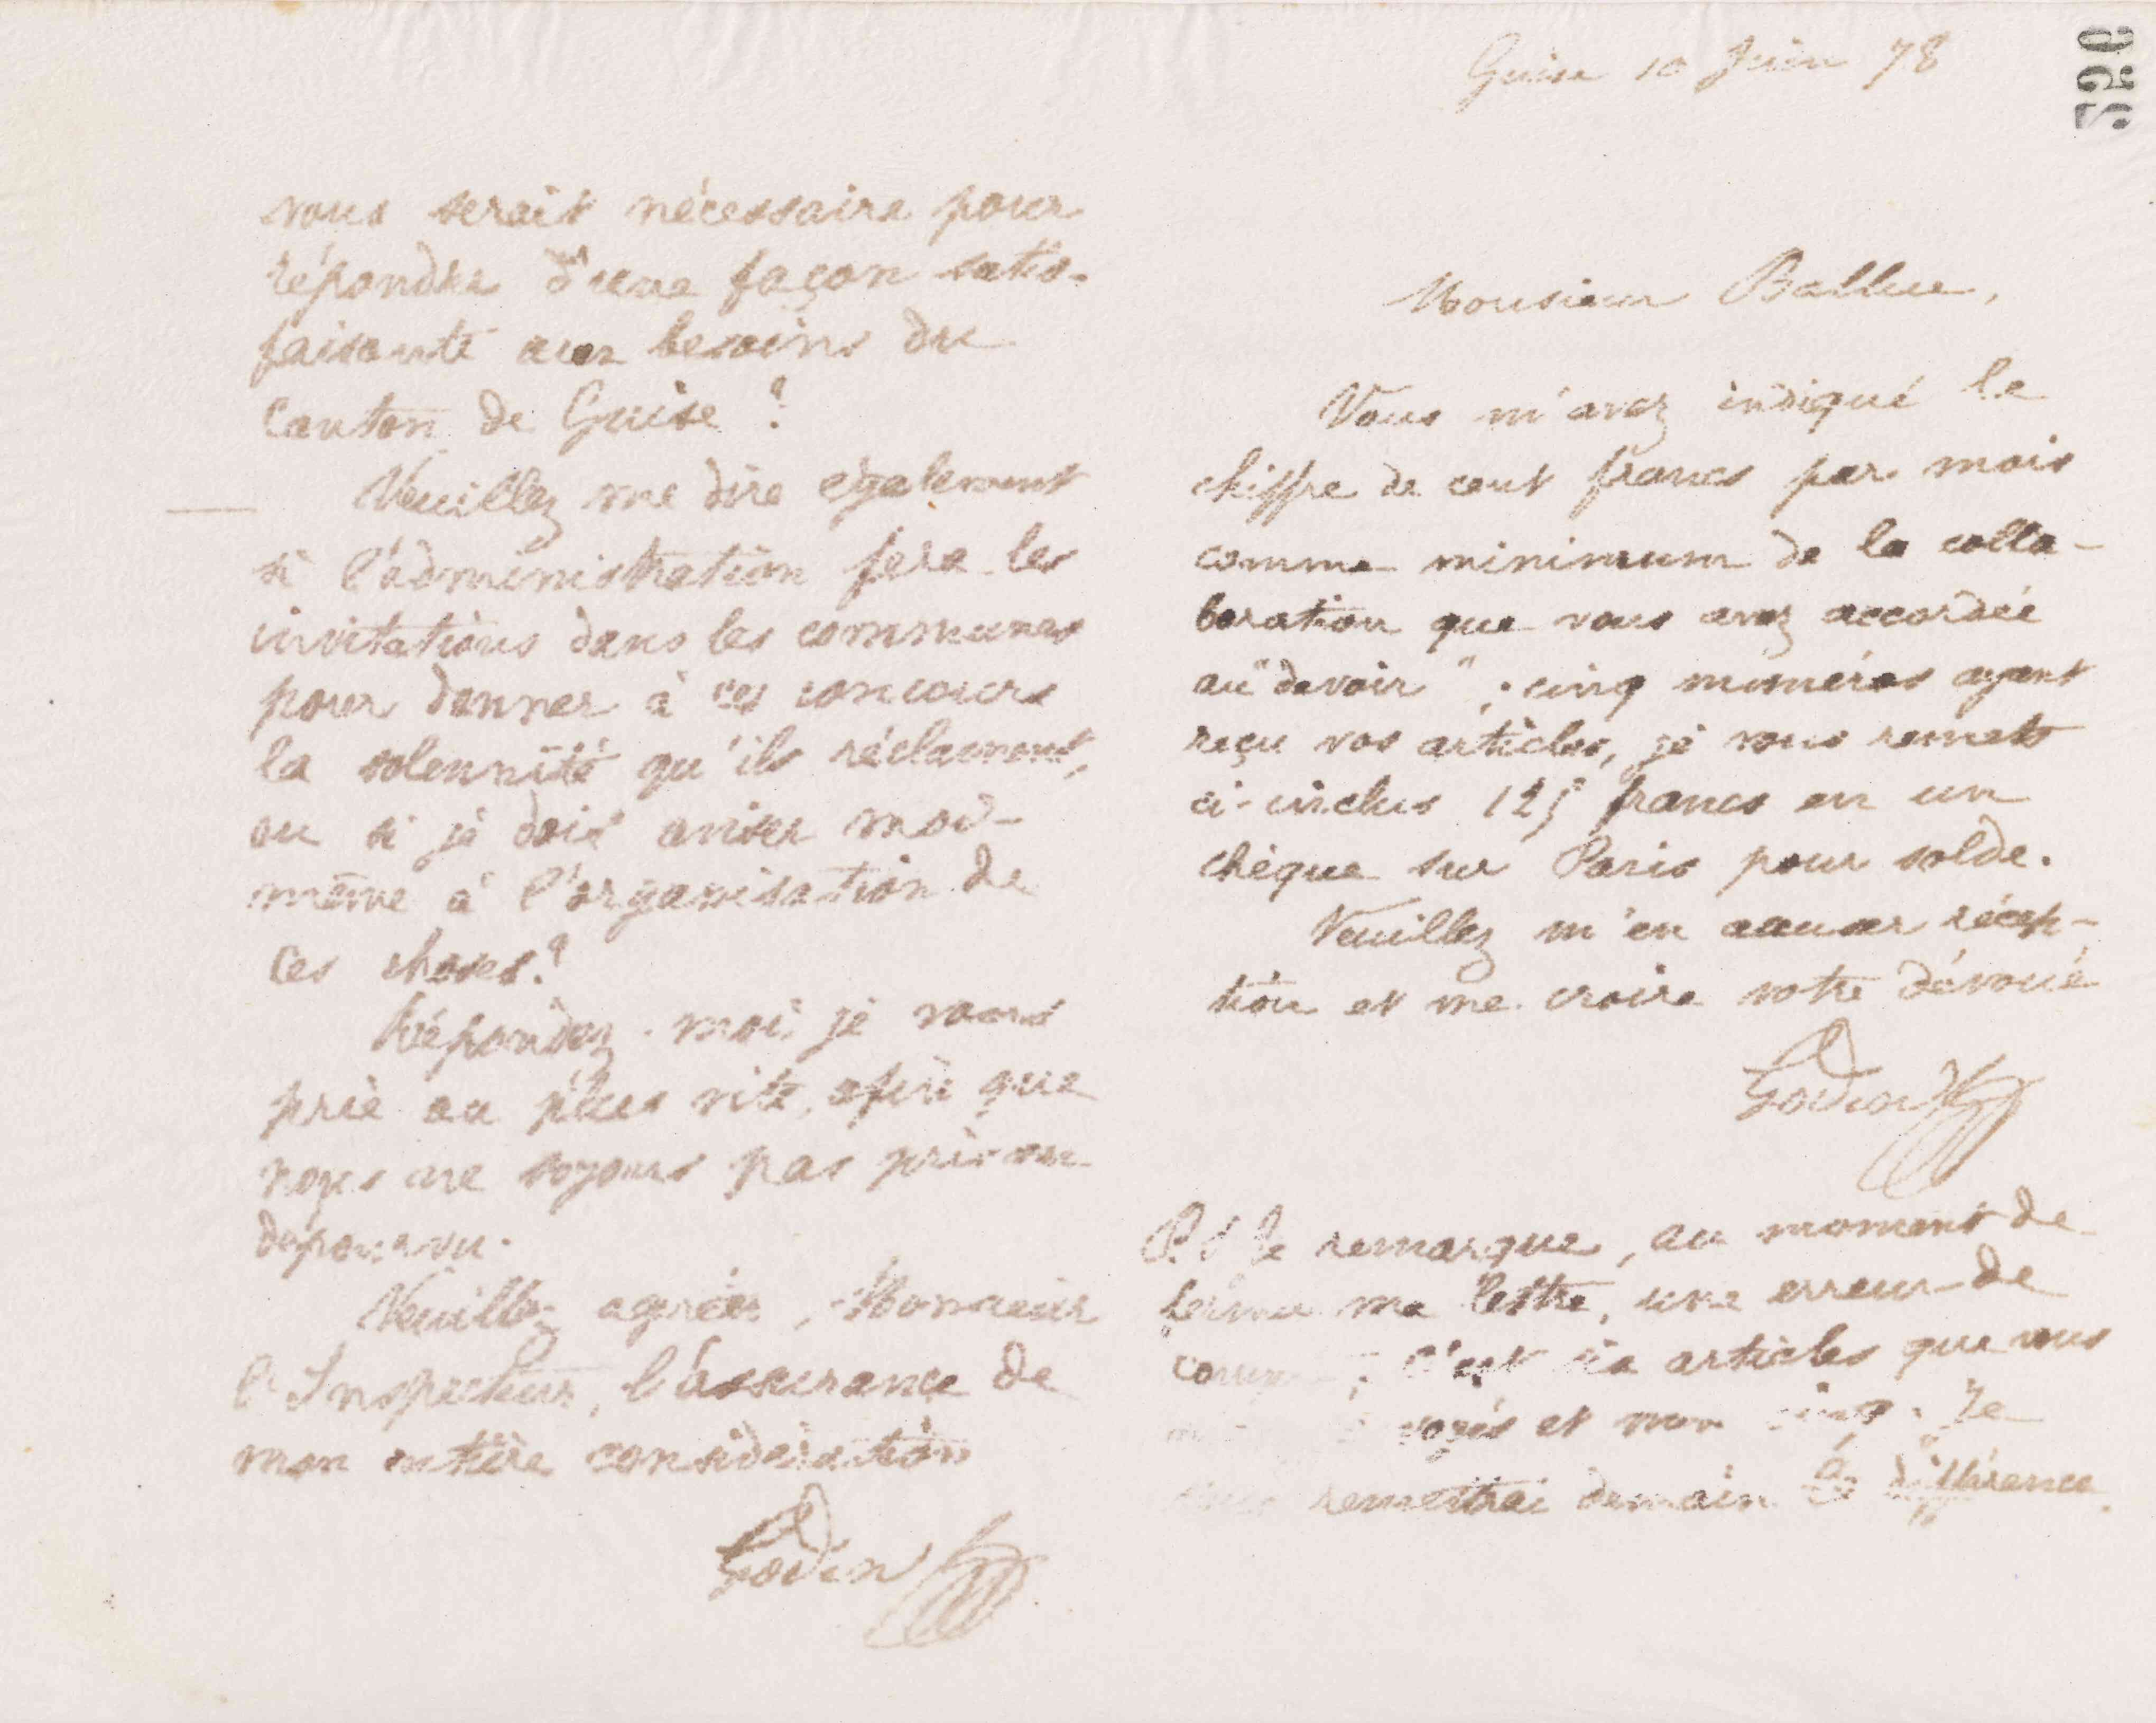 vous serait nécessaire pour
répondre d'une façon satis-
faisante aux besoins du
Canton de Guise ?
Veuillez me dire également
si l'administration fera les
invitations dans les communes
pour donner à ces concours
la solennité qu'ils réclament,
ou si je dois aviser moi-
même à l'organisation de
ces choses ?
Répondez-moi je vous
prie au plus vite, afin que
nous ne soyons pas pris au
dépourvu.
Veuillez agréer, Monsieur
l'Inspecteur, l'assurance de
mon entière considération
Godin
Guise 10 Juin 78
Monsieur Ballue,
Vous m'avez indiqué le
chiffre de cent francs par mois
comme minimum de la colla-
boration que vous avez accordée
au "devoir" ; cinq numéros ayant
reçu vos articles, je vous remets
ci-inclus 125 francs en un
chèque sur Paris pour solde.
Veuillez m'en accuser récep-
tion et me croire votre dévoué
Godin
P.S Je remarque, au moment de
fermer ma lettre, une erreur de
; c'est six articles que vous
et non cinq. Je
vous remettrai demain la différence.